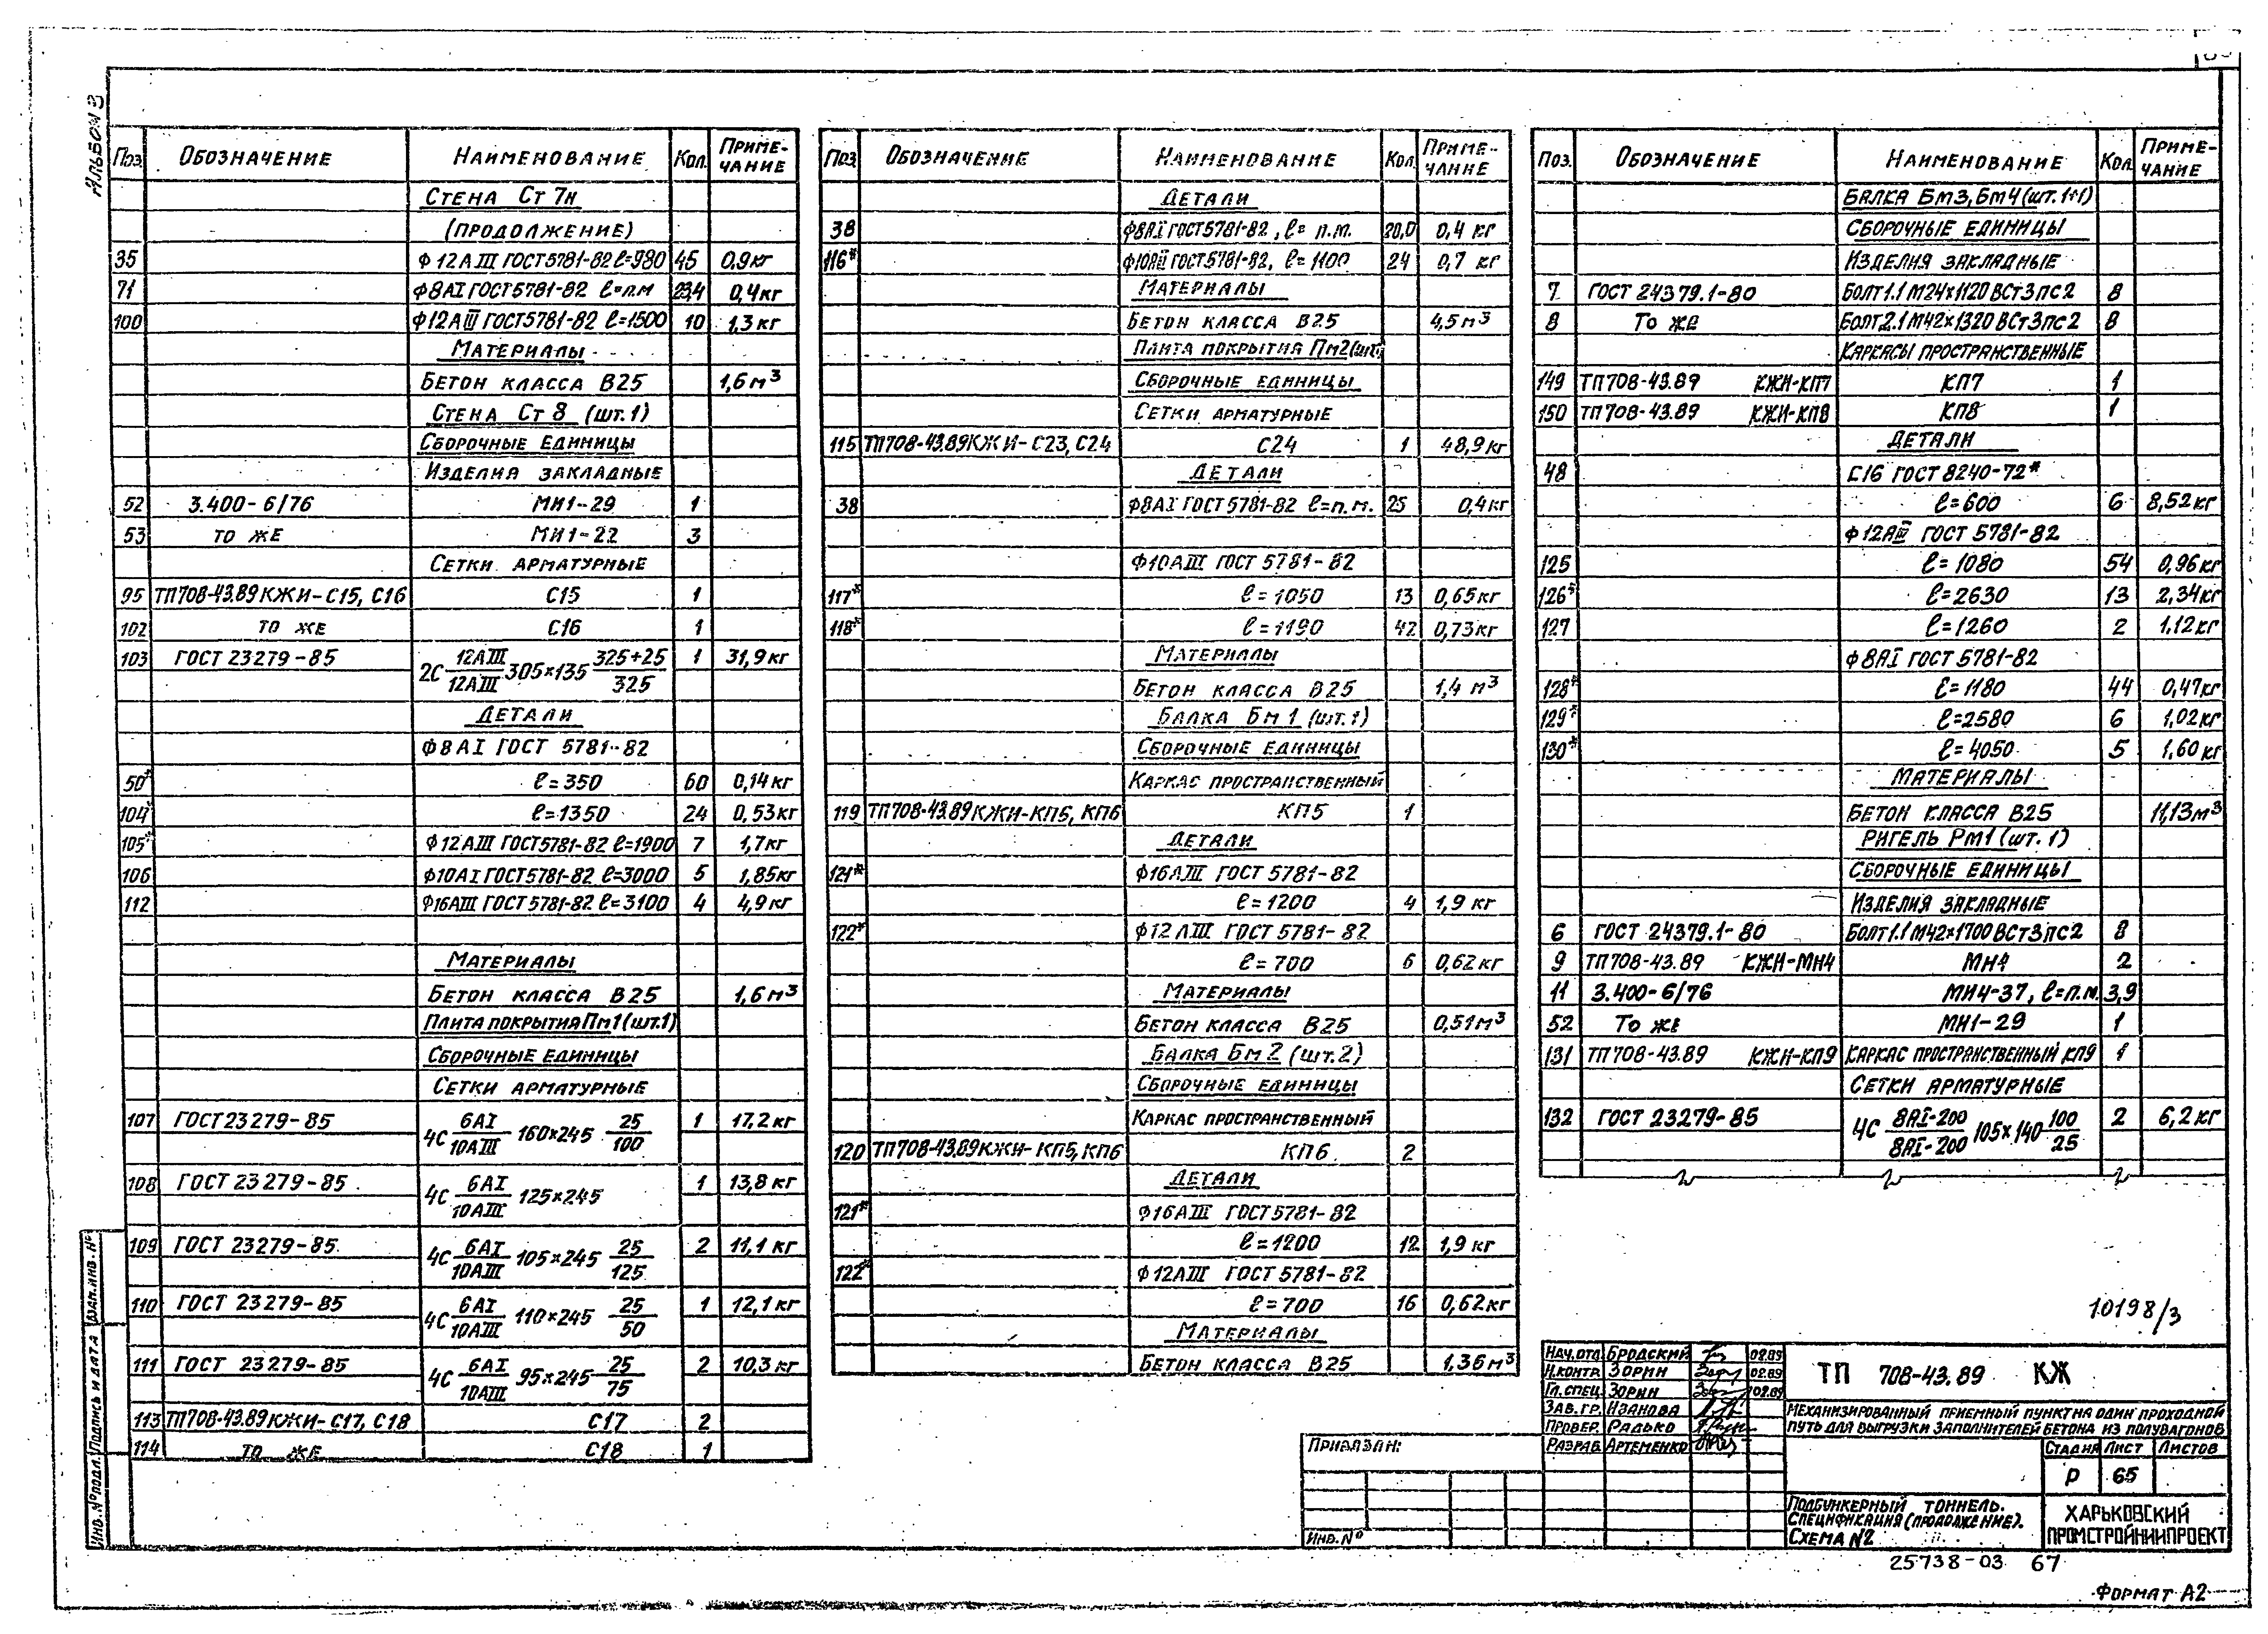 Альбом 3
Поз. Обозначение Наименование Кол. Примечание
Стена Ст 7н
(продолжение)
35 Ф12АIII ГОСТ5781-82 ℓ=980 45 0,9кг
71 Ф8АI ГОСТ5781-82 ℓ=п.м 23,4 0,4кг
100 Ф12АIII ГОСТ5781-82 ℓ=1500 10 1,3кг
Материалы
Бетон класса В25 1,6м³
Стена Ст 8 (шт.1)
Сборочные единицы
Изделия закладные
52 3.400-6/76 МИ1-29 1
53 то же МИ1-22 3
Сетки арматурные
95 ТП708-43.89КЖИ-С15, С16 С15 1
102 то же С16 1
103 ГОСТ 23279-85 2С 12АIII/12АIII 305×135 325+25/325 1 31,9кг
Детали
Ф8АI ГОСТ 5781-82
50* ℓ=350 60 0,14кг
104* ℓ=1350 24 0,53кг
105* Ф12АIII ГОСТ5781-82 ℓ=1900 7 1,7кг
106 Ф10АI ГОСТ5781-82 ℓ=3000 5 1,85кг
112 Ф16АIII ГОСТ5781-82 ℓ=3100 4 4,9кг
Материалы
Бетон класса В25 1,6м³
Плита покрытия Пм1 (шт.1)
Сборочные единицы
Сетки арматурные
107 ГОСТ23279-85 4С 6АI/10АIII 160×245 25/100 1 17,2кг
108 ГОСТ 23279-85 4С 6АI/10АIII 125×245 1 13,8кг
109 ГОСТ 23279-85 4С 6АI/10АIII 105×245 25/125 2 11,1кг
110 ГОСТ 23279-85 4С 6АI/10АIII 110×245 25/50 1 12,1кг
111 ГОСТ 23279-85 4С 6АI/10АIII 95×245 25/75 2 10,3кг
113 ТП708-43.89КЖИ-С17, С18 С17 2
114 то же С18 1
Поз. Обозначение Наименование Кол. Примечание
Детали
38 Ф8АI ГОСТ5781-82, ℓ= п.м. 20,0 0,4 кг
116* Ф10АIII ГОСТ5781-82, ℓ=1100 24 0,7 кг
Материалы
Бетон класса В25 4,5м³
Плита покрытия Пм2 (шт1)
Сборочные единицы
Сетки арматурные
115 ТП708-43.89КЖИ-С23, С24 С24 1 48,9кг
Детали
38 Ф8АI ГОСТ5781-82 ℓ=п.м. 25 0,4кг
Ф10АIII ГОСТ 5781-82
117* ℓ=1050 13 0,65кг
118* ℓ=1190 42 0,73кг
Материалы
Бетон класса В25 1,4 м³
Балка Бм 1 (шт.1)
Сборочные единицы
Каркас пространственный
119 ТП708-43.89КЖИ-КП5, КП6 КП5 1
Детали
121* Ф16АIII ГОСТ 5781-82
ℓ=1200 4 1,9 кг
122* Ф12АIII ГОСТ 5781-82
ℓ=700 6 0,62кг
Материалы
Бетон класса В25 0,51м³
Балка Бм2 (шт.2)
Сборочные единицы
Каркас пространственный
120 ТП708-43.89КЖИ-КП5, КП6 КП6 2
Детали
121* Ф16АIII ГОСТ5781-82
ℓ=1200 12 1,9 кг
122* Ф12АIII ГОСТ 5781-82
ℓ=700 16 0,62кг
Материалы
Бетон класса В25 1,36м³
Поз. Обозначение Наименование Кол. Примечание
Балка Бм3, Бм4 (шт.1+1)
Сборочные единицы
Изделия закладные
7 ГОСТ 24379.1-80 Болт1.1М24×1120ВСт3пс2 8
8 То же Болт2.1М42×1320ВСт3пс2 8
Каркасы пространственные
149 ТП708-43.89 КЖИ-КП7 КП7 1
150 ТП708-43.89 КЖИ-КП8 КП8 1
Детали
48 С16 ГОСТ 8240-72*
ℓ=600 6 8,52кг
Ф12АIII ГОСТ 5781-82
125 ℓ=1080 54 0,96кг
126* ℓ=2630 13 2,34кг
127 ℓ=1260 2 1,12кг
Ф8АI ГОСТ 5781-82
128* ℓ=1180 44 0,47кг
129* ℓ=2580 6 1,02кг
130* ℓ=4050 5 1,60кг
Материалы
Бетон класса В25 11,13м³
Ригель Рм1 (шт.1)
Сборочные единицы
Изделия закладные
6 ГОСТ 24379.1-80 Болт1.1М42×1700ВСт3пс2 8
9 ТП708-43.89 КЖИ-МН4 МН4 2
11 3.400-6/76 МИ4-37, ℓ=п.м. 3,9
52 То же МИ1-29 1
131 ТП708-43.89 КЖИ-КП9 Каркас пространственный КП9 1
Сетки арматурные
132 ГОСТ 23279-85 4С 8АI-200/8АI-200 105×140 100/25 2 6,2кг
10198/3
Нач.отд. Бродский 02.89
Н.контр. Зорин 02.89
Гл.спец. Зорин 02.89
Зав.гр. Иванова
Провер. Радько
Разраб. Артеменко
ТП 708-43.89 КЖ
Механизированный приемный пункт на один проходной
путь для выгрузки заполнителей бетона из полувагонов
Стадия Лист Листов
Р 65
Подбункерный тоннель.
Спецификация (продолжение).
Схема N2
Харьковский
Промстройниипроект
Привязан:
Инв.N°
Инв.N° подл. Подпись и дата Взам.инв.N°
25738-03 67
Формат А2